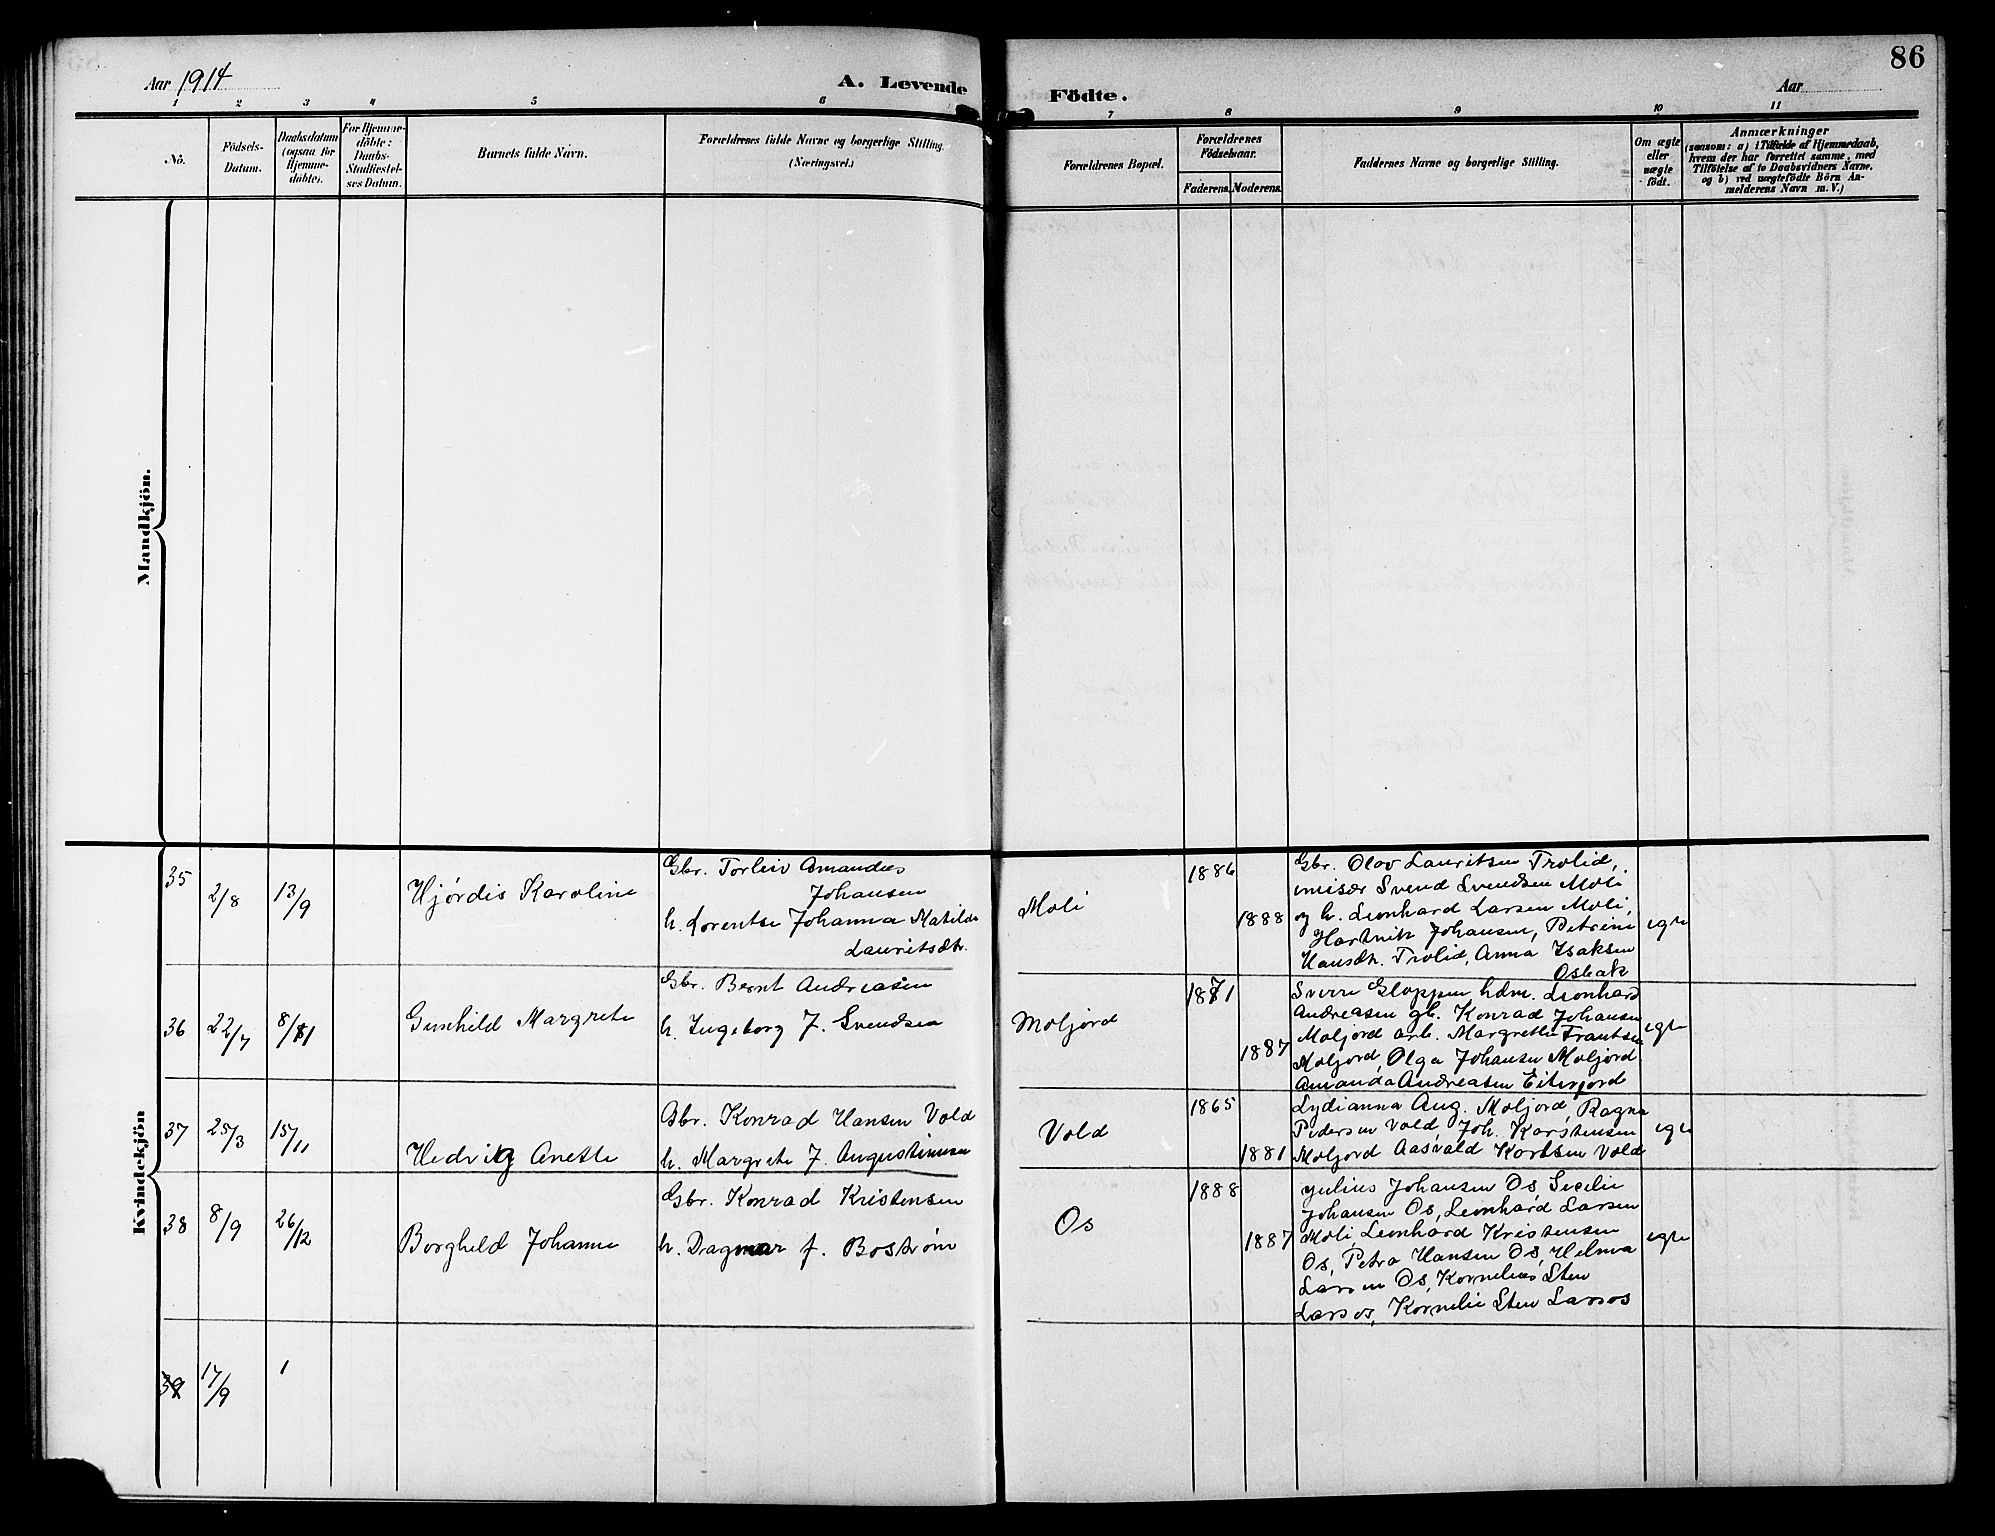 86
Aar 1914
A. Levende
Födte.
Aar
1 2 3 4 5 6 7 8 9 10 11
No.
Födsels-
Datum.
Daabsdatum
(ogsaa for
Hjemme-
döbte).
For Hjemme-
döbte:
Daabs-
Stadfæstel-
ses Datum.
Barnets fulde Navn.
Forældrenes fulde Navne og borgerlige Stilling.
(Næringsvei.)
Forældrenes Bopæl.
Forældrenes
Födselsaar.
Faderens. Moderens.
Faddernes Navne og borgerlige Stilling.
Om ægte
eller
uægte
födt.
Anmærkninger
(saasom: a) i Tilfælde af Hjemmedaab,
hvem der har forrettet samme, med
Tilföielse af to Daabsvidners Navne,
og b) ved uægtefödte Börn An-
melderens Navn m. V.)
Mandkjön.
Kvindekjön
35
2/8
13/9
Hjørdis Karoline
Gbr. Torleiv Amandus
Johansen
h. Lorentse Johanna Matilde
Lauritsdtr.
Moli
1886
1888
Gbr. Olav Lauritsen Trolid,
Svend Svendsen Moli
og h. Leonhard Larsen Moli,
Hartvik Johansen, Petrine
Hansdtr. Trolid, Anna Isaksen
Osbak
egte
36
22/7
8/11
Gunhild Margrete
Gbr. Bernt Andreasen
h. Ingeborg F. Svendsen
Moljord
1871
1887
Sverre Gloppen hdm. Leonhard
Andreasen gb. Konrad Johansen
Moljord arb. Margrethe Frantsen
Moljord, Olga Johansen Moljord
Amanda Andreasen Eiterjord
egte
37
25/3
15/11
Hedvig Anette
Gbr. Konrad Hansen Vold
h. Margrete F. Augustinusen
Vold
1865
1881
Lydianna Aug. Moljord, Ragna
Pedersen Vold, Joh. Karstensen
Moljord Aasvald Kortsen Vold
egte
38
8/9
26/12
Borghild Johanne
Gbr. Konrad Kristensen
h. Dagmar f. Bostrøm
Os
1888
1887
Julius Johansen Os Secilie
Johansen Os, Leonhard Larsen
Moli, Leonhard Kristensen
Os, Petra Hansen Os, Helma
Larsen Os, Kornelius Sten
Larsos, Kornelie Sten Larsos
egte
39
17/9
1